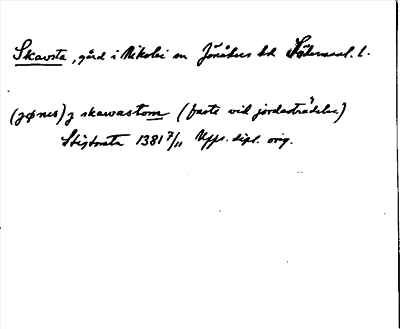 Skavsta, gård i Nikolai sn Jönåkers hd Södermanl. l.
(jønis) j skawastom (faste vid jordasträdelse)
Stigtomta 1381 7/11 Upps. dipl. orig.